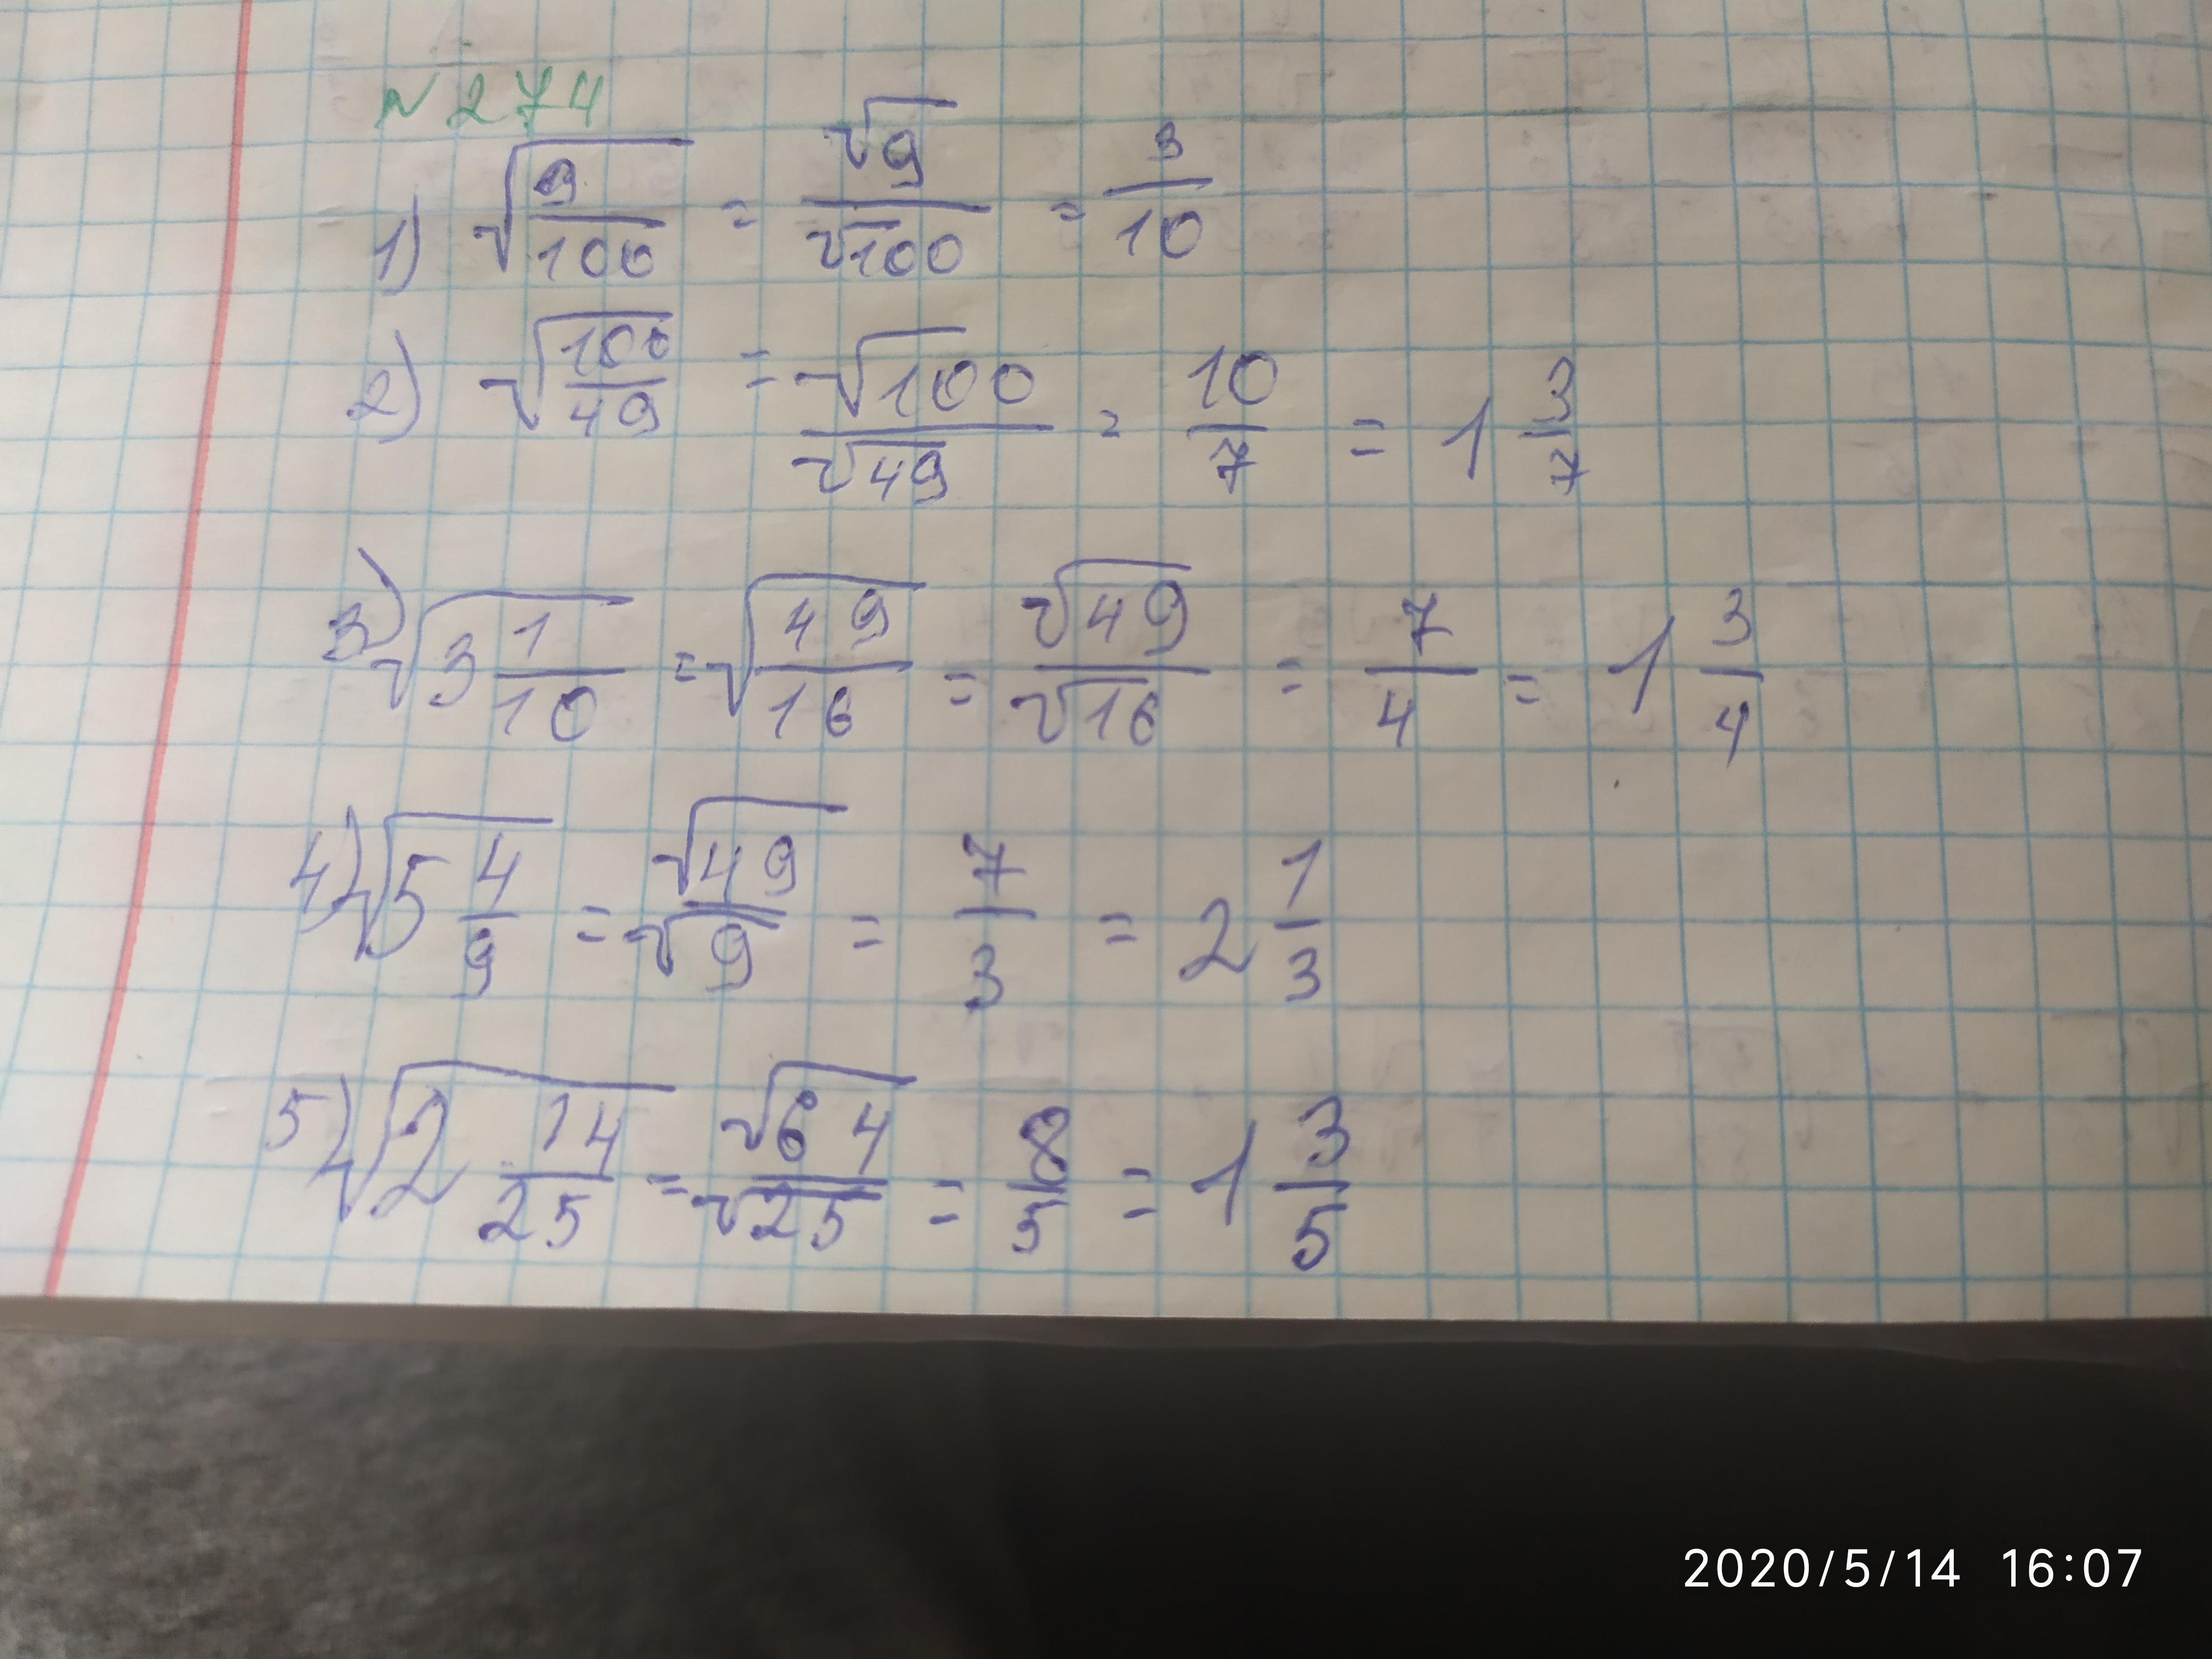 № 274
1) √(9/100) = √9/√100 = 3/10
2) √(100/49) = √100/√49 = 10/7 = 1 3/7
3) √(3 1/10) = √(49/16) = √49/√16 = 7/4 = 1 3/4
4) √(5 4/9) = √49/√9 = 7/3 = 2 1/3
5) √(2 14/25) = √64/√25 = 8/5 = 1 3/5
2020/5/14 16:07